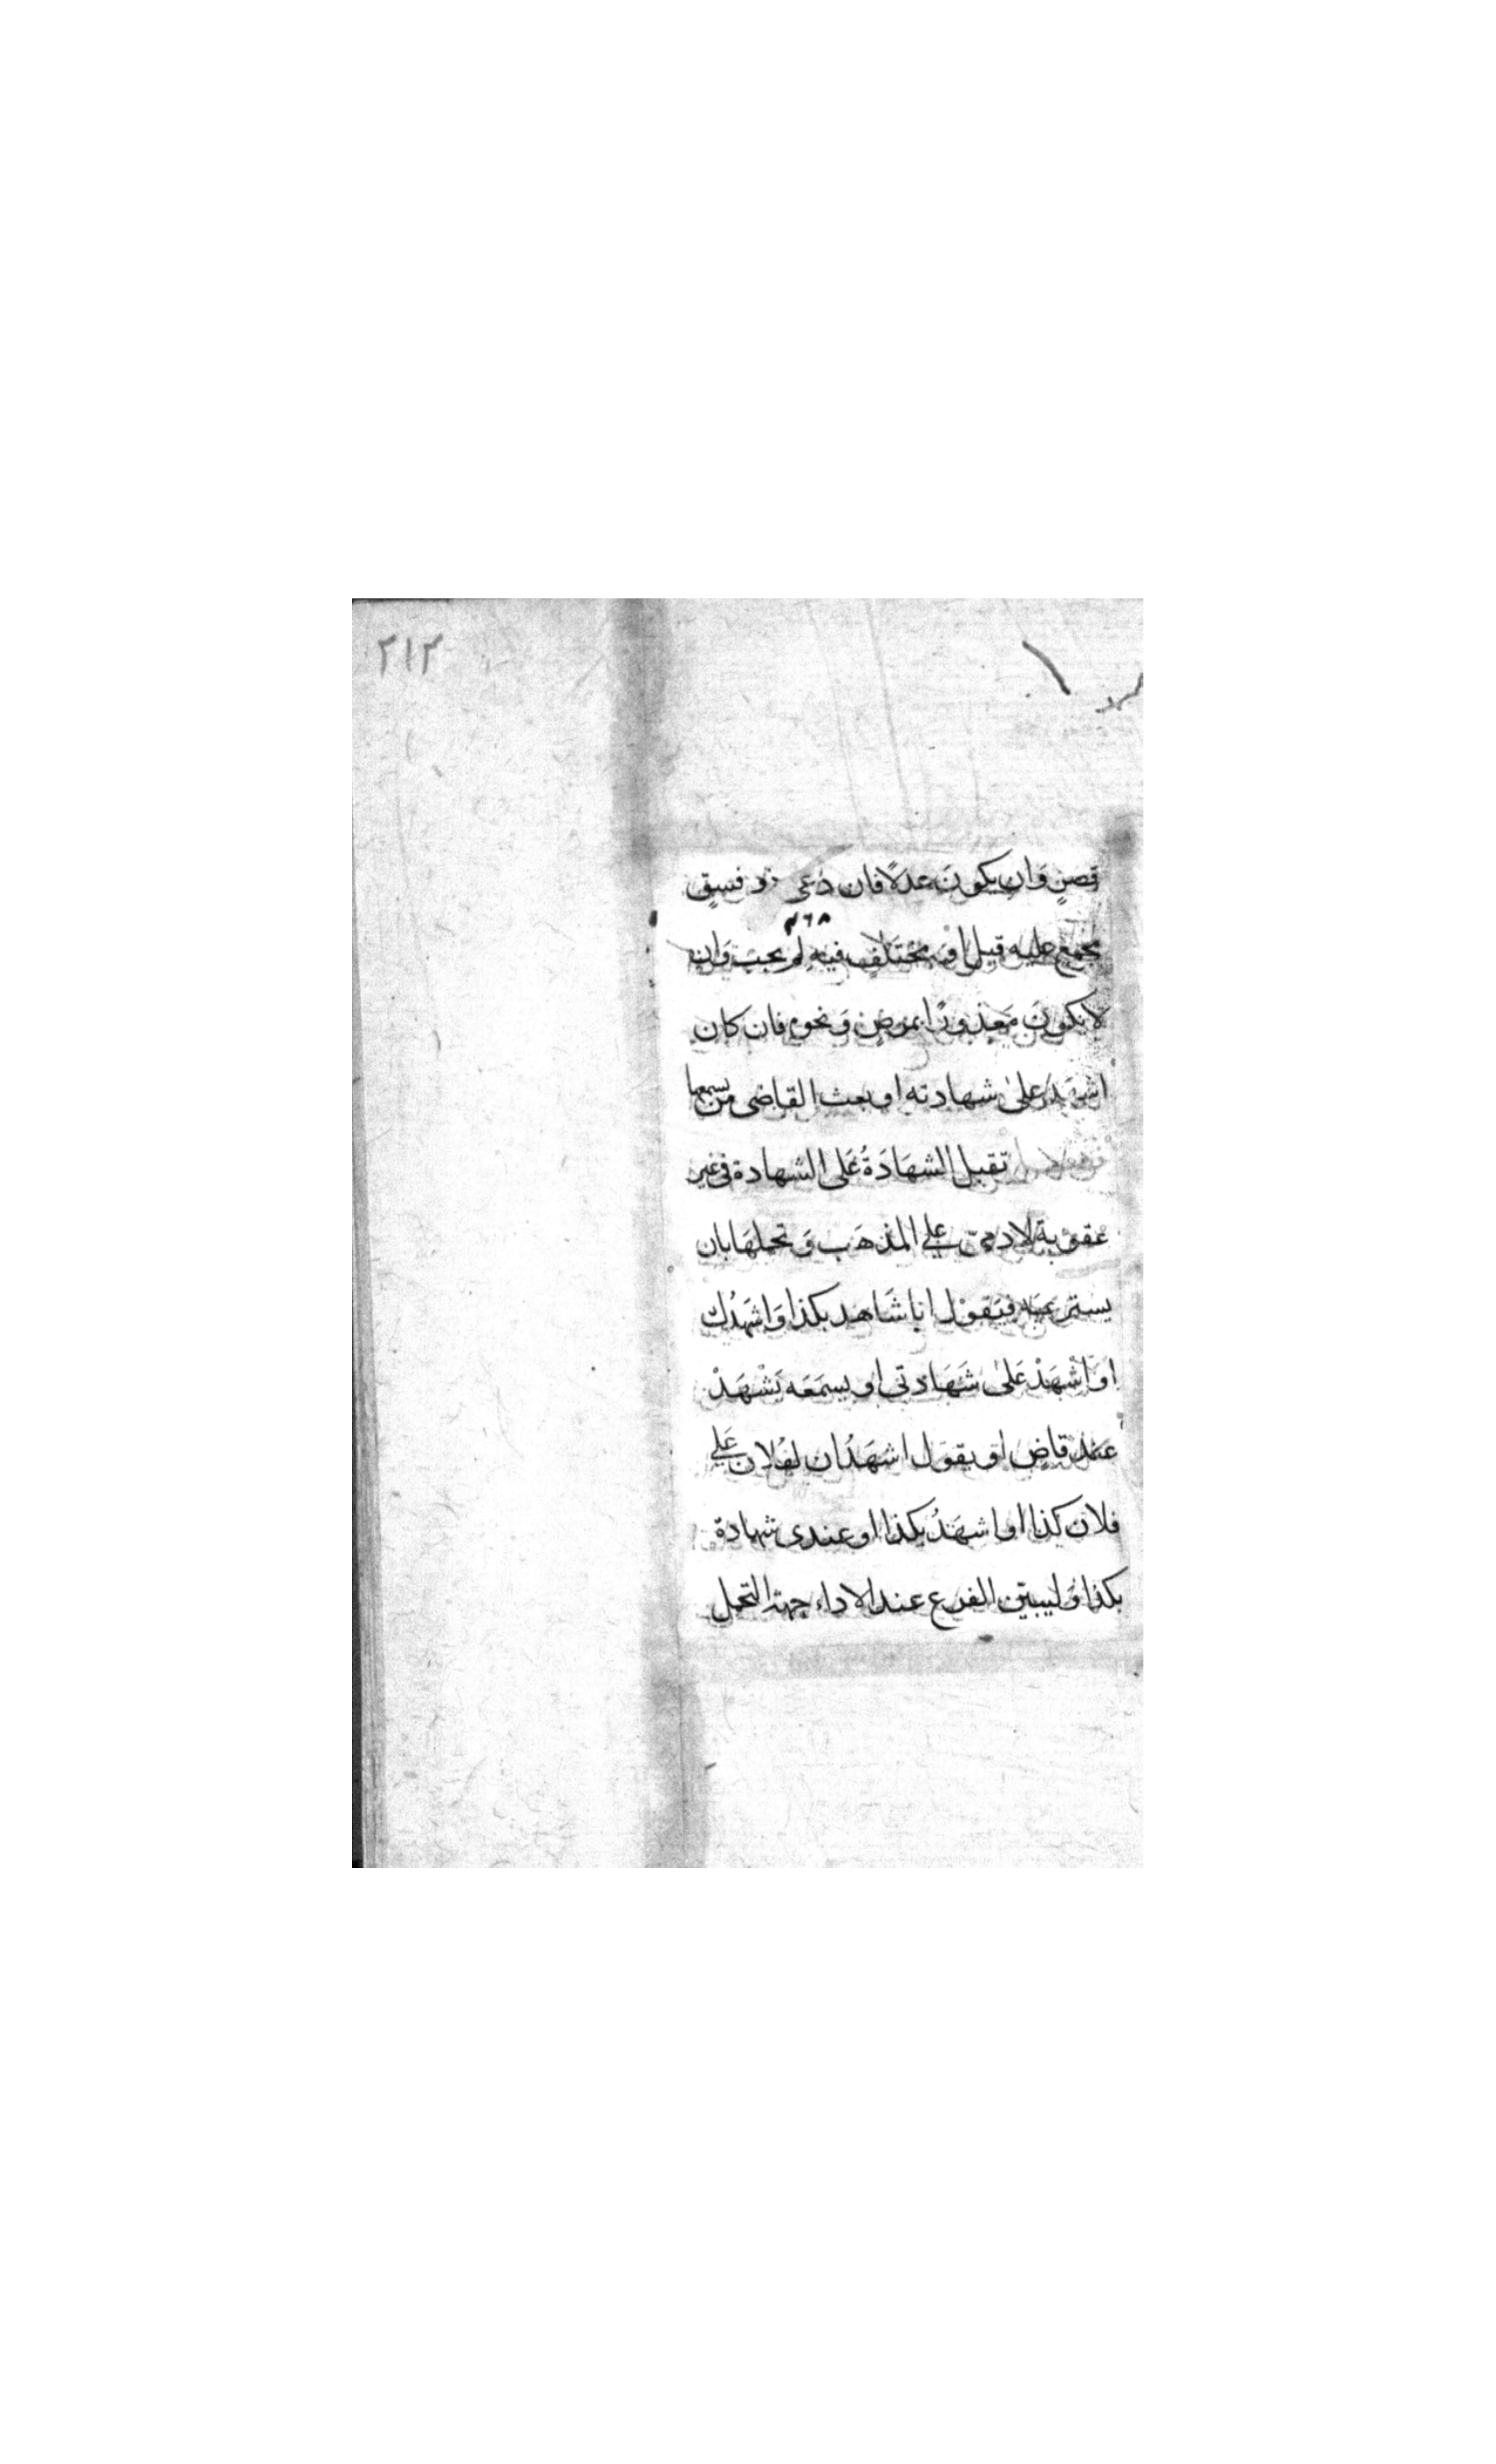 ٢١٢
قصرٍ وَان يكونَ عدلًا فان دُعى ذو فسقٍ
٤٦٨
مجمع عليه قيل او مختلف فيه لم يجب وَان
لا يكونَ مَعذورًا بمرضٍ وَ نحوه فان كان
اشهد على شهادته او بعث القاضى من يسمعها
تقبل الشهَادَةُ عَلى الشهادة فى غير
عقوبة لادمىّ على المذهَب وَ تحملهَا بان
يسترعيه فيَقوْل انا شَاهد بكذا وَاشهدُك
اوَ اشْهَدْ عَلىٰ شَهَادتى او يسمَعَه يَشْهَدْ
عند قاضٍ اوَ يقوَل اشهَدُ ان لفُلان عَلى
فلان كذا او اشهَدُ بكذا او عندى شهادة
بكذا وَ ليبيّن الفرع عند الاداء جهة التحمل